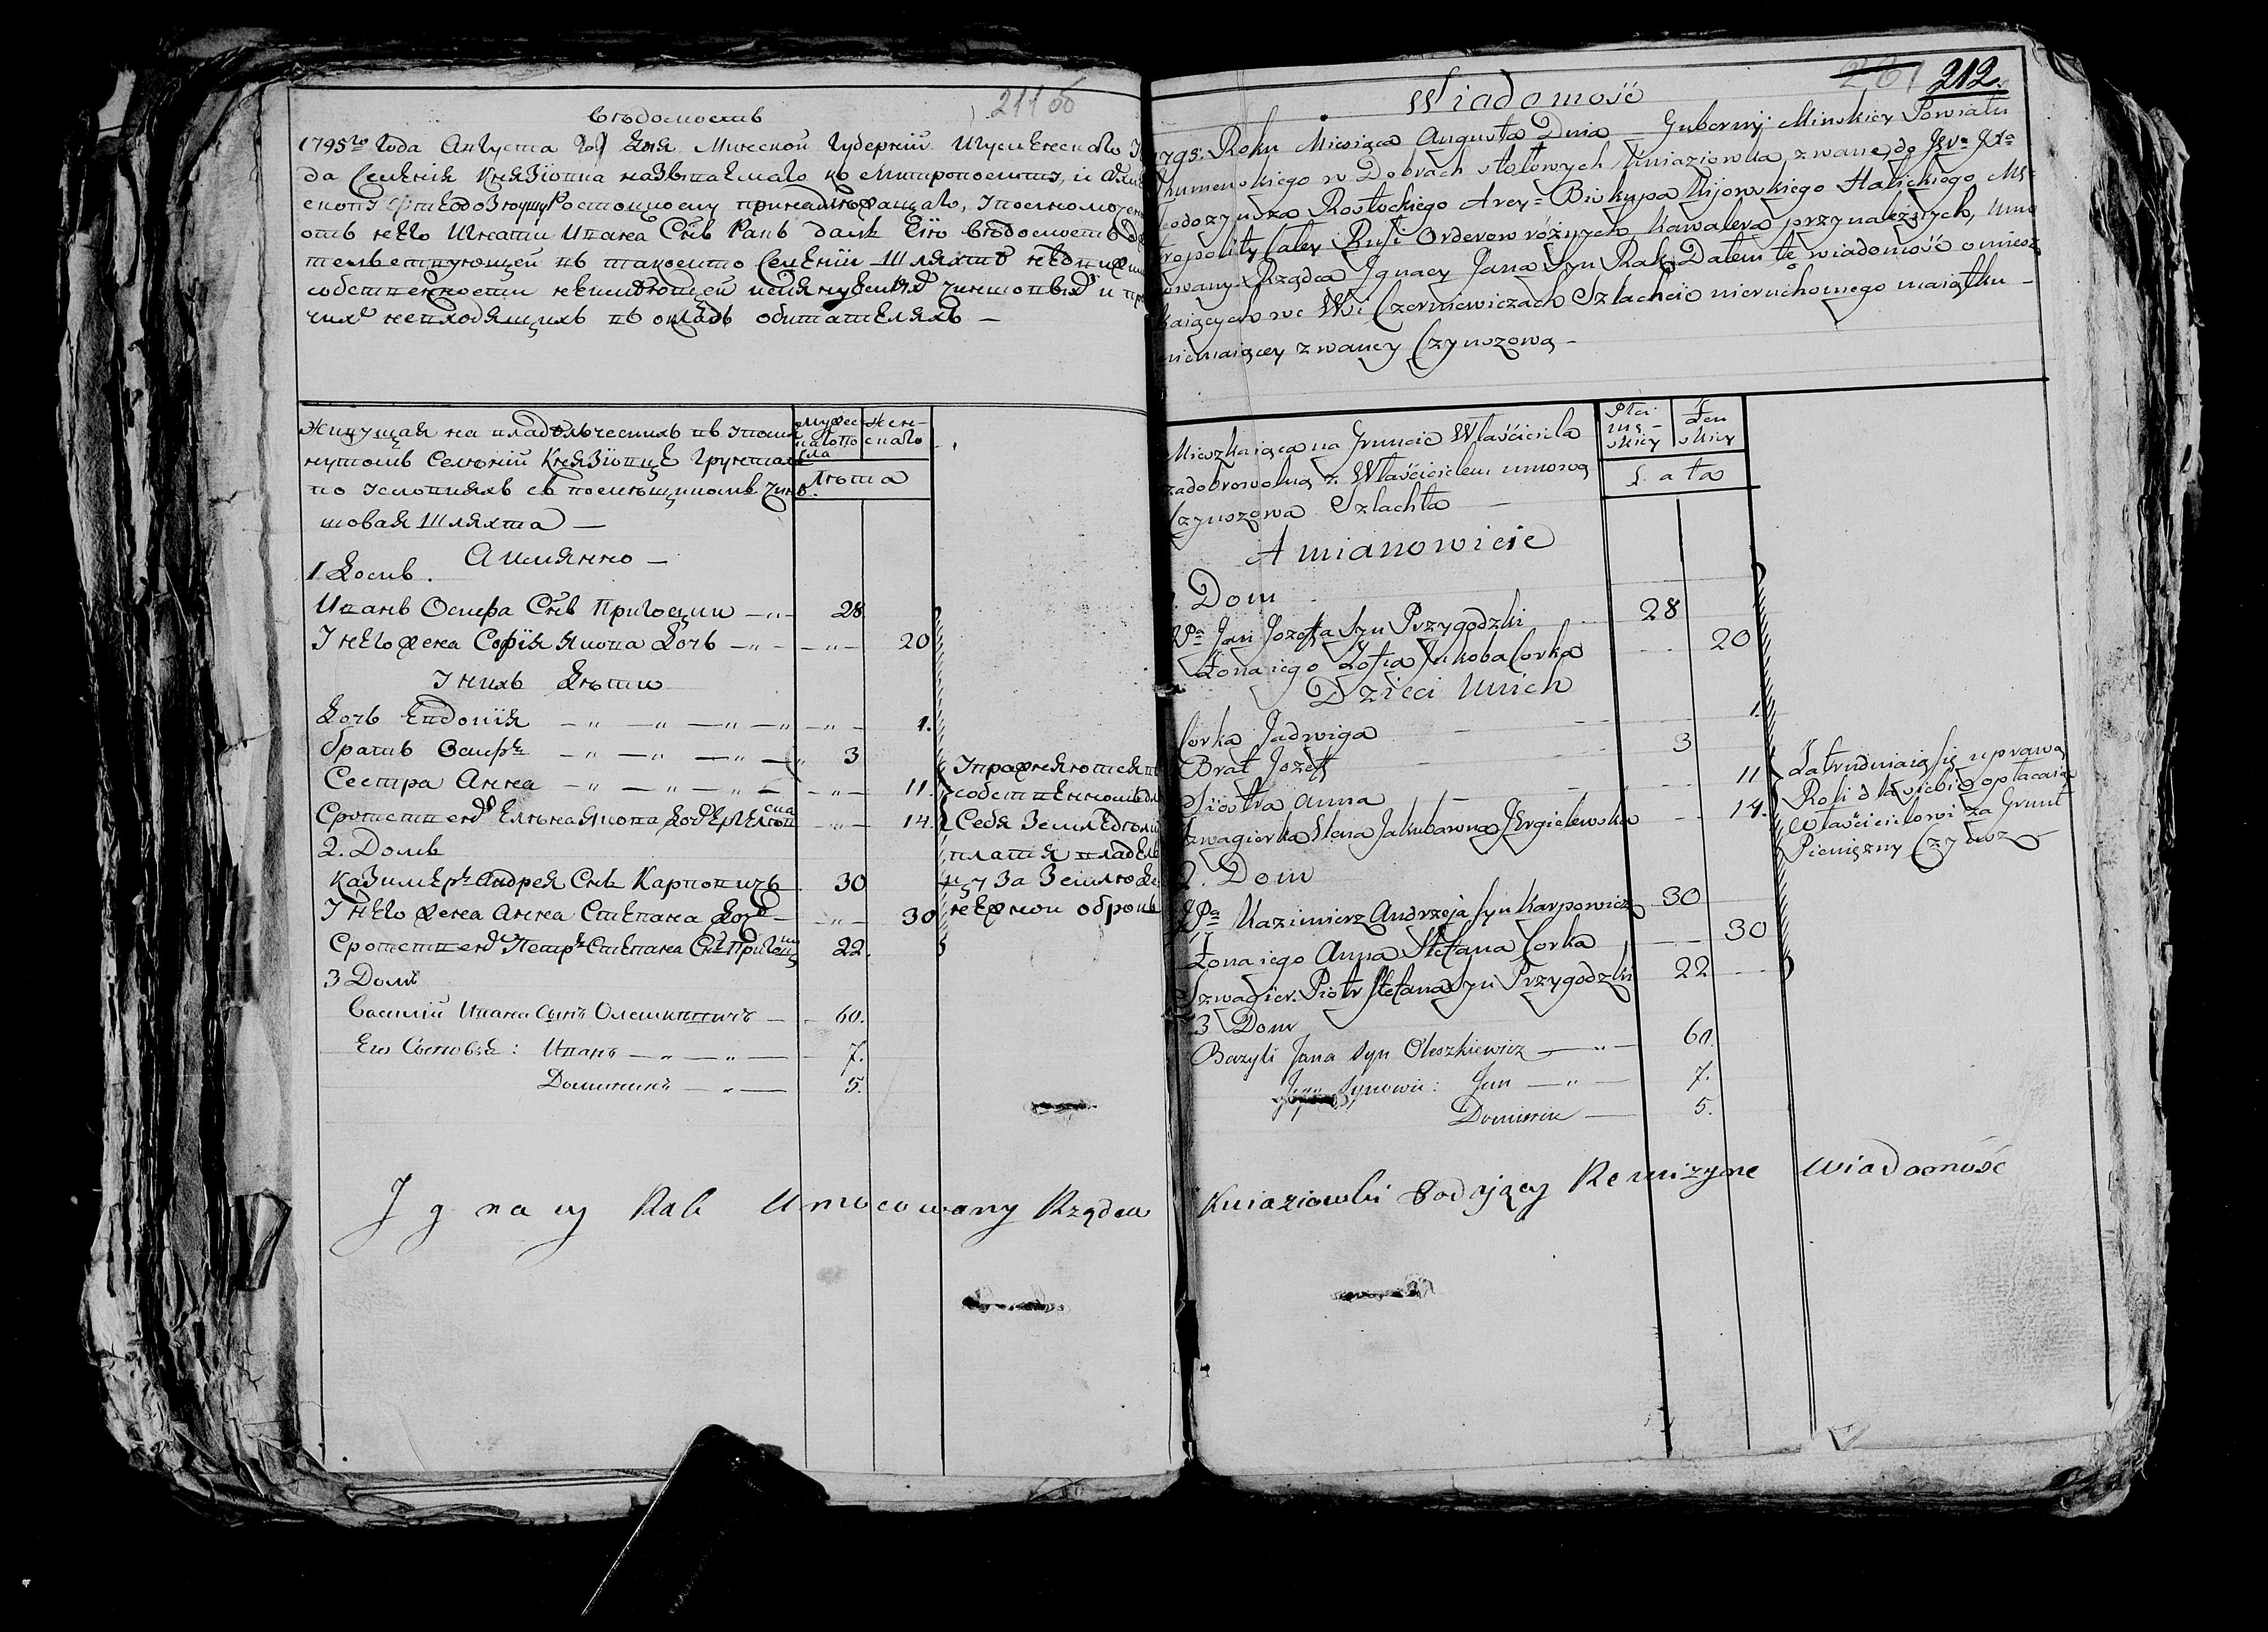 211 об
Вѣдомость
1795го Года Августа дня Минской Губернїи Игуменскаго
да Селенїя Князїовка называемаго
Ростоцкому принадлежащаго,
отъ него Игнати Ивана Снъ Ракъ далъ Сїю вѣдомость
Селенїи Шляхтѣ
собственности неимѣющей чиншовых и
чих невходящихъ въ окладъ обитателяхъ —
Живущая на владѣльческихъ въ упомя
нутомъ Селенїи Князїовце Грунтахъ
по условїяхъ съ помѣщикомъ чин
шовая Шляхта —
Мужес
каго по
ла
Жен-
скаго
Лѣта
А имянно —
1 Домъ.
Иванъ Осифа Снъ Пригоцки — 28
У него жена Софїя Якова Дочь — 20
У нихъ Дѣти
Дочь Евдокїя — 1.
братъ Осифъ — 3
Сестра Анна — 11.
Елена Якова Доч 14.
2. Домъ
Казимеръ Андрея Снъ Карповичъ 30
У него жена Анна Степана Доч — 30
Петръ Степана Снъ 22.
3 Домъ
Василій Ивана сынъ Олешкевичъ — 60.
Его Сыновья: Иванъ — 7.
Доминикъ — 5.
Упражняются в
собственномъ для
Себя Земледѣлїи
платя владѣль
цу За Землю де
нежной оброкъ
212.
Wiadomość
1795. Roku Miesiąca Augusta Dnia — Gubernij Minskiey Powiatu
Ihumenskiego w Dobrach stołowych Kniaziowka zwane, do JWa JXa
eodozyusza Rostockiego Arcy-Biskupa Kijowskiego Halickiego Me-
tropolity całey Rusi Orderow różnych Kawalera przynależnych, Umo
cowany Rządca Jgnacy Jana Syn Rak Dałem tę wiadomość o miesz
kaiących we Wsi Czerniewiczach Szlachcie nieruchomego maiątku —
niemaiącey zwaney Czynszową —
Mieszkaiąca na Gruncie Właściciela
za dobrowolną z Właścicielem umową
Czynszowa Szlachta —
Płci
mę-
skiey
Żen
skiey
Lata
A mianowicie
1. Dom
JPa Jan Jozefa Syn Przygodzki 28
Żona iego Zofia Jakoba Corka 20
Dzieci U nich
Corka Jadwiga 1.
Brat Jozeff 3
Siostra Anna 11
Szwagierka Elena Jakubowna 14.
2. Dom
JPa Kazimierz Andrzeja Syn Karpowicz 30
Żona iego Anna Stefana Corka 30
Szwagier. Piotr Stefana Syn Przygodzki 22
3 Dom
Bazyli Jana syn Oleszkiewicz — 60.
Jego synowie: Jan — 7.
Dominik — 5.
Zatrudniaią się uprawą
Roli dla siebie opłacaiąc
Właścicielowi za Grunt
Pieniężny Czynsz
Jgnacy Rak Umocowany Rządca Kniaziowki Podający Rewizyine Wiadomość